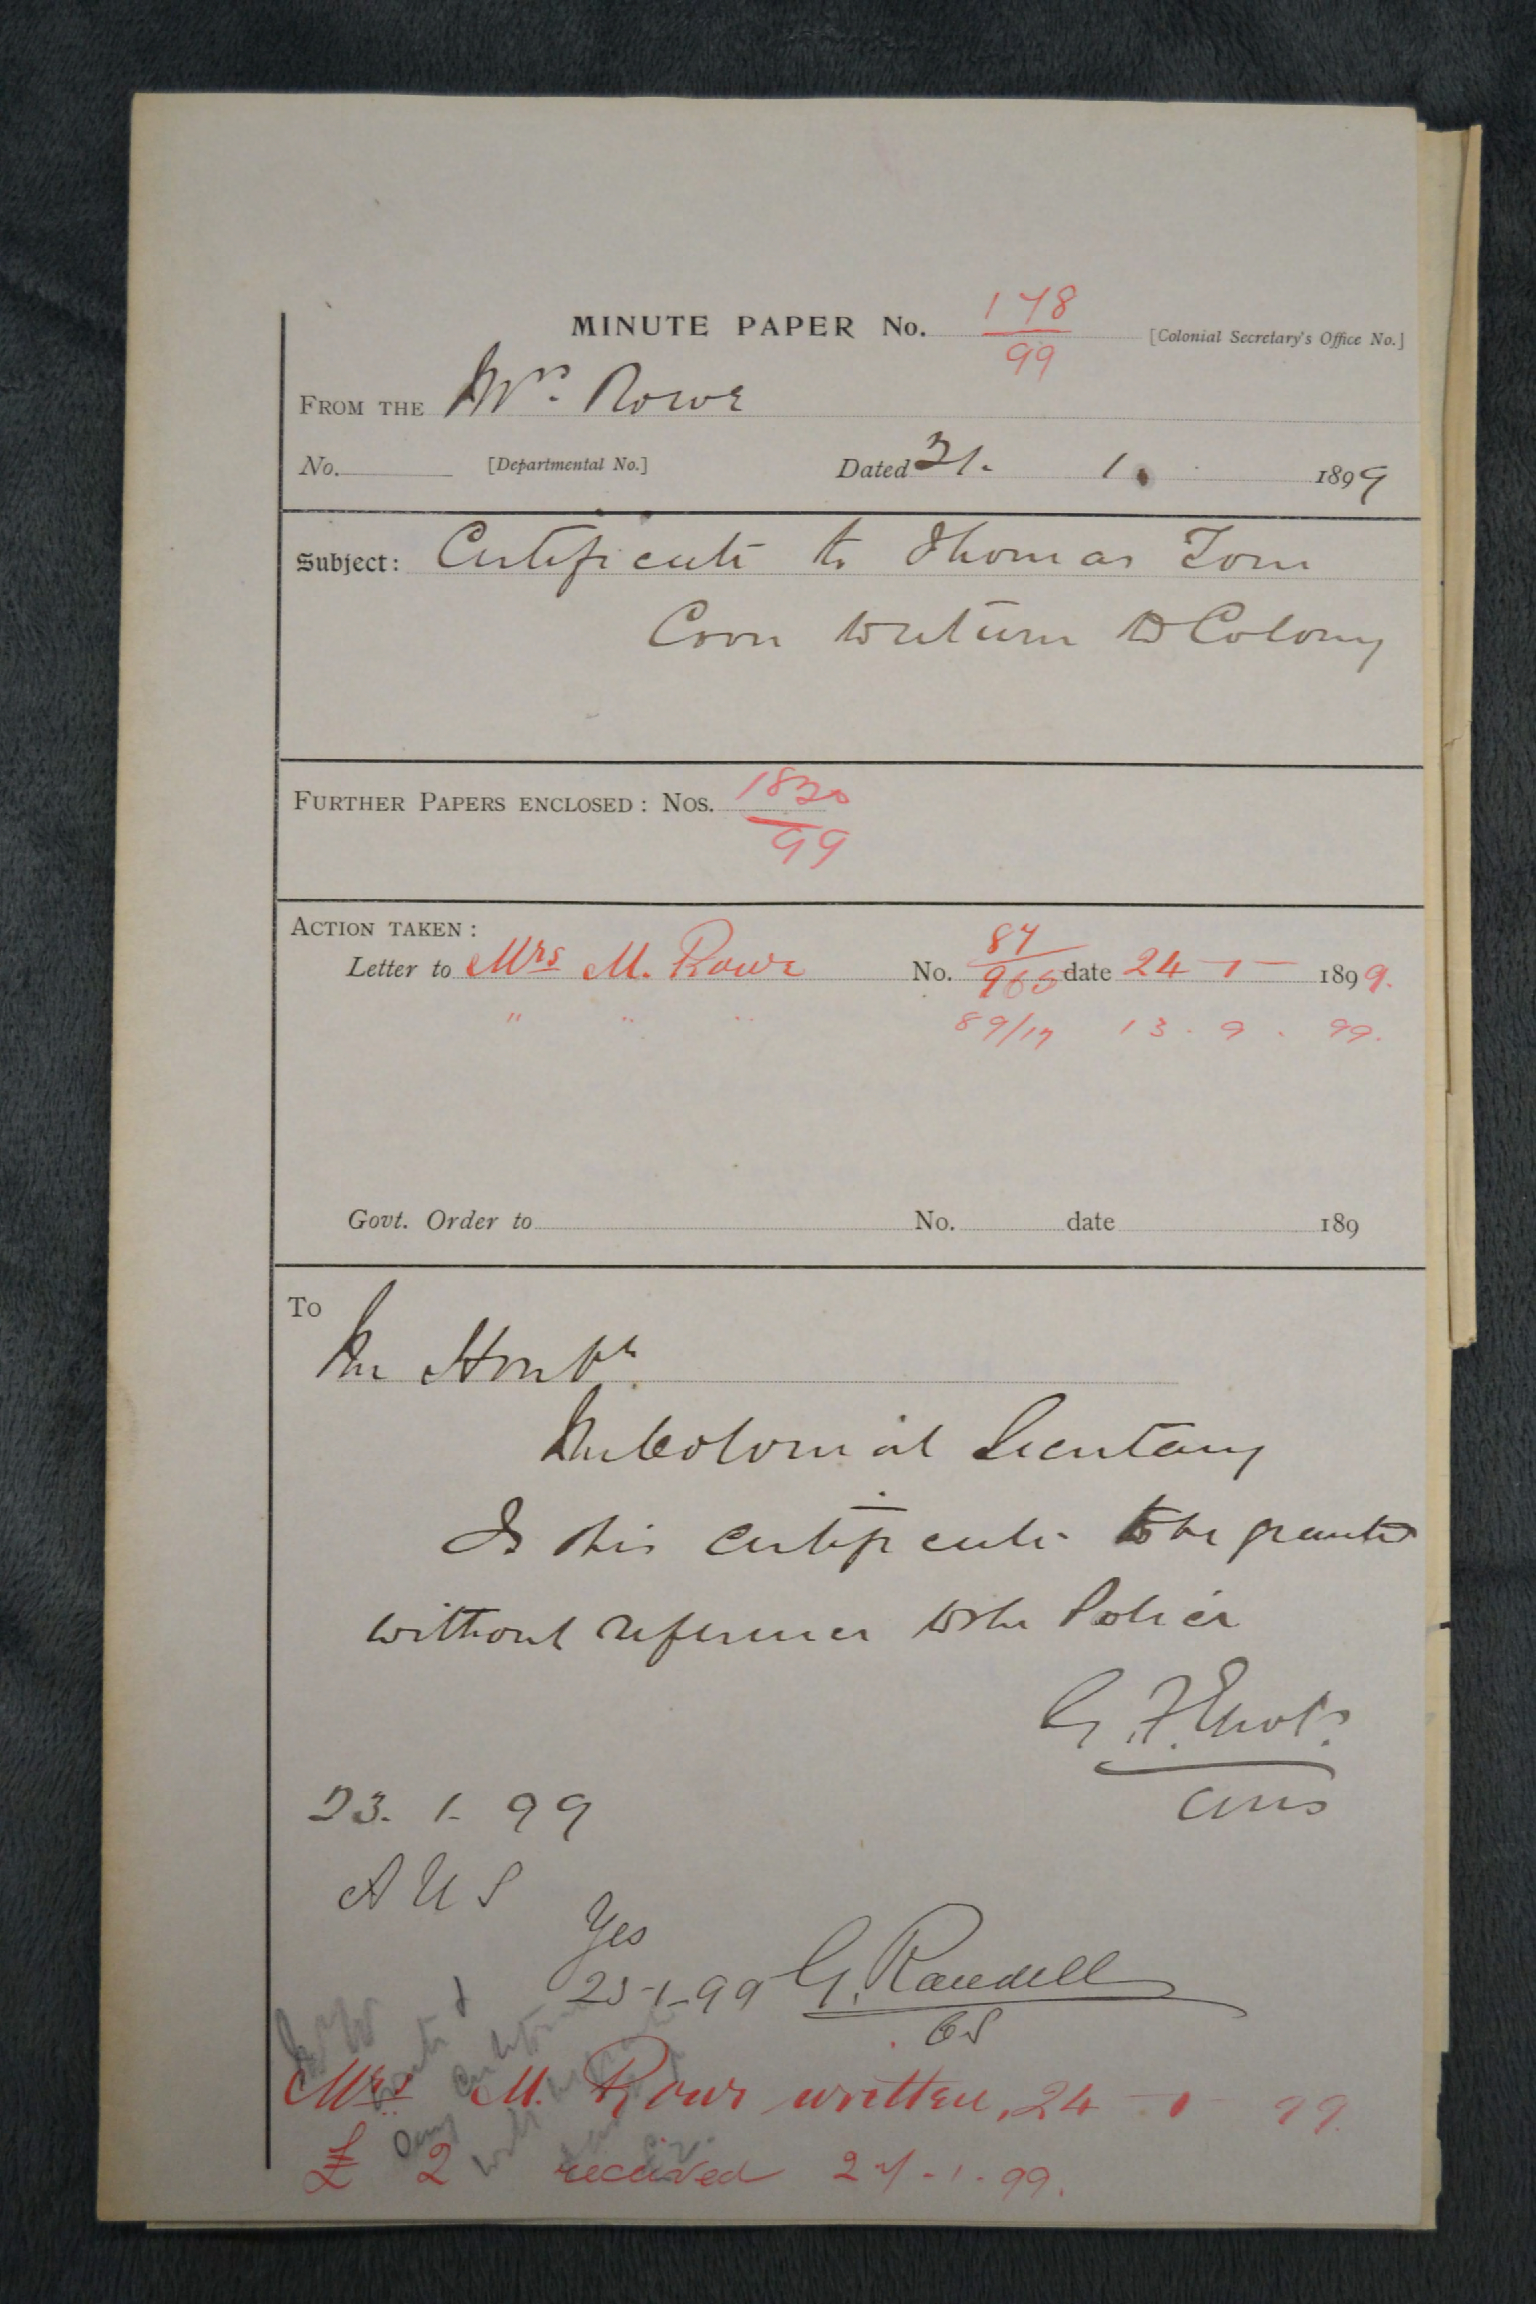 178
MINUTE PAPER No. [Colonial Secretary's Office No.]
99
FROM THE Mrs. Rowe
No. [Departmental No.] Dated 21. 1. 1899
Subject: Certificate to Thomas Tom
Coon to return to Colony
1820
FURTHER PAPERS ENCLOSED: NOS.
99
ACTION TAKEN:
87
Letter to Mrs M. Rowe No. date 24-1-1899.
965
" " " 89/17 13.9.99.
Govt. Order to No. date 189
To
The Honble
The Colonial Secretary
Is this certificate to be granted
without reference to the Police
G. F. Eliot.
AUS
23.1.99
AUS
Yes
23-1-99 G. Randell
CS
Mrs M. Rowe written, 24-1-99.
£2 received 27.1.99.